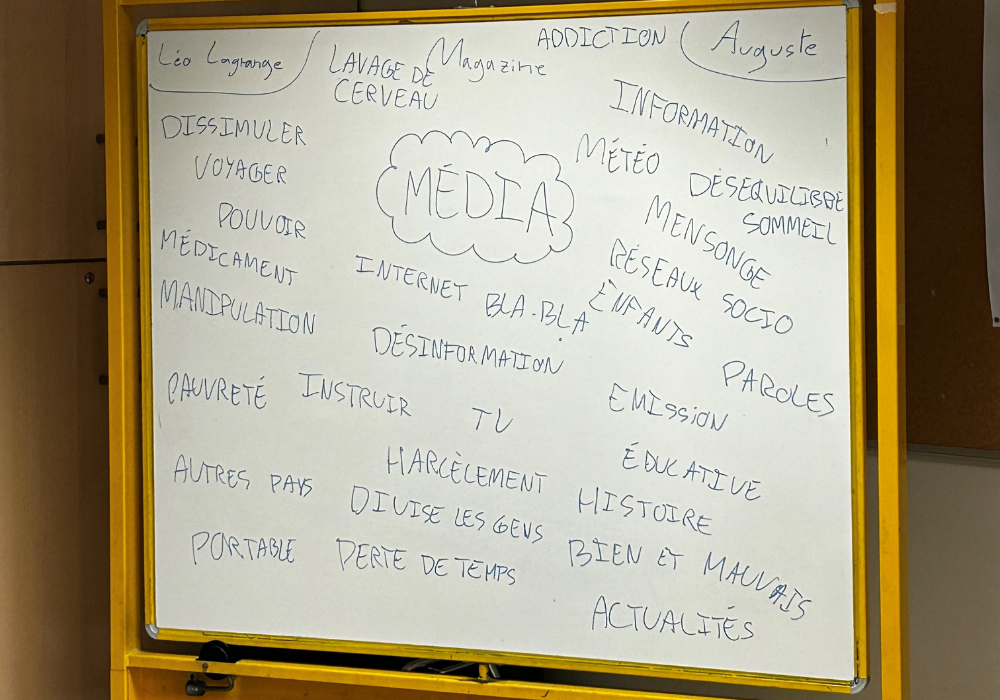 Léo Lagrange
LAVAGE DE
CERVEAU
Magazine
ADDICTION
Auguste
DISSIMULER
VOYAGER
POUVOIR
MÉDICAMENT
MANIPULATION
PAUVRETÉ
AUTRES PAYS
PORTABLE
MÉDIA
INTERNET
BLA-BLA
DÉSINFORMATION
INSTRUIR
TV
HARCÈLEMENT
DIVISE LES GENS
PERTE DE TEMPS
INFORMATION
MÉTÉO
DÉSEQUILIBRE
SOMMEIL
MENSONGE
RÉSEAUX SOCIO
ENFANTS
PAROLES
EMISSION
ÉDUCATIVE
HISTOIRE
BIEN ET MAUVAIS
ACTUALITÉS